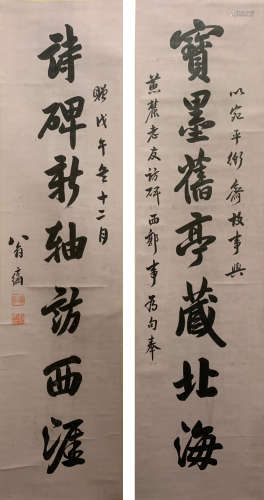 以宛平衙齋故事與
寶墨舊亭藏北海
蕉麓老友訪碑西郭事為句奉
贈戊午冬十二月
詩碑新軸訪西涯
八翁